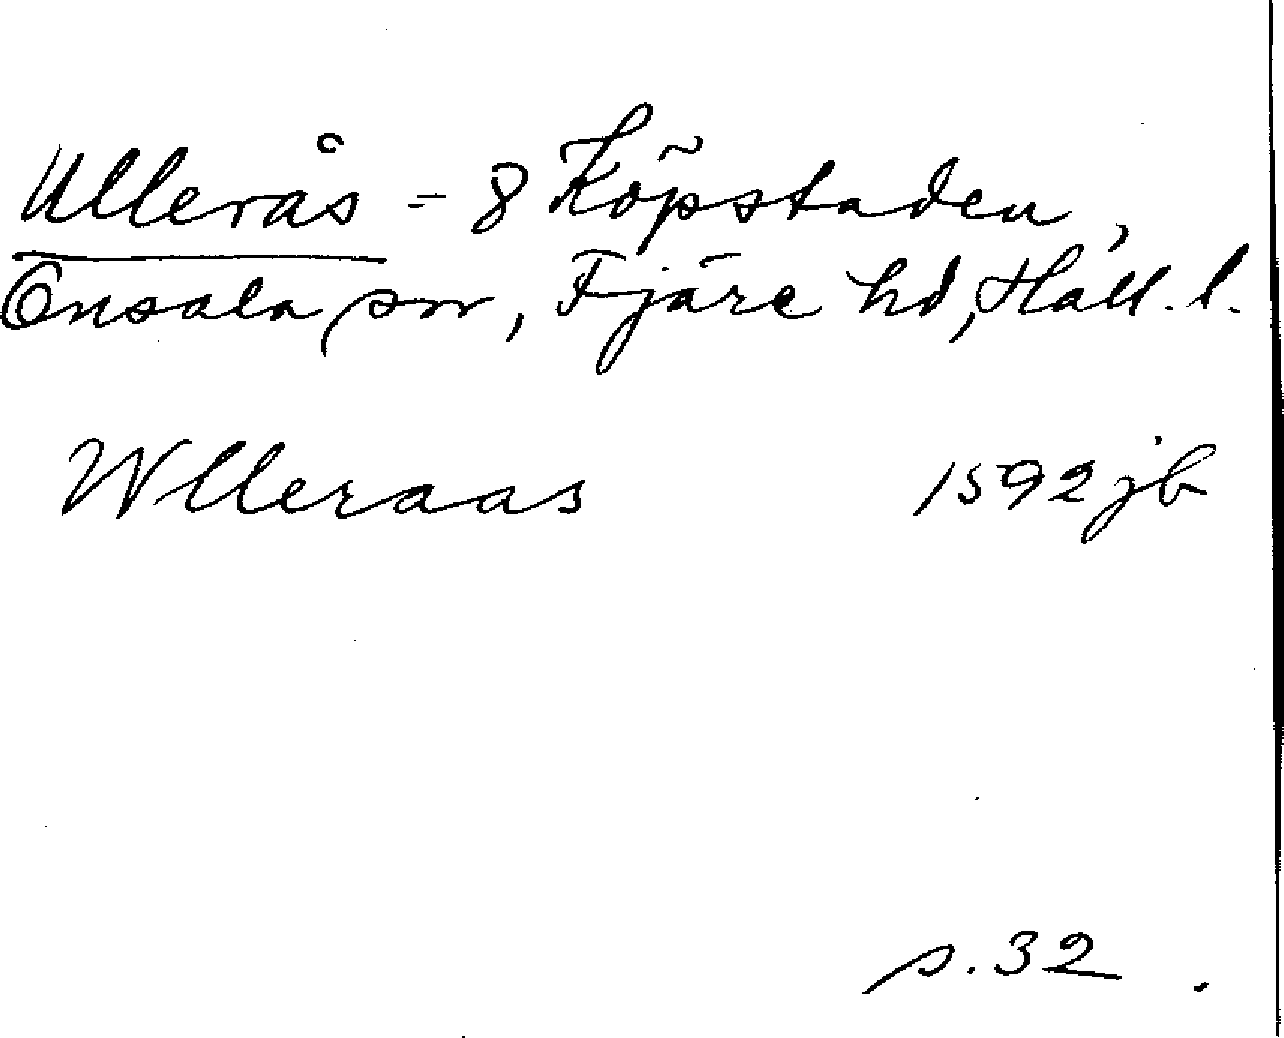 Ullerås = 8 Köpstaden,
Onsala sn, Fjäre hd, Hall. l.
Wlleraas 1592 jb
s. 32